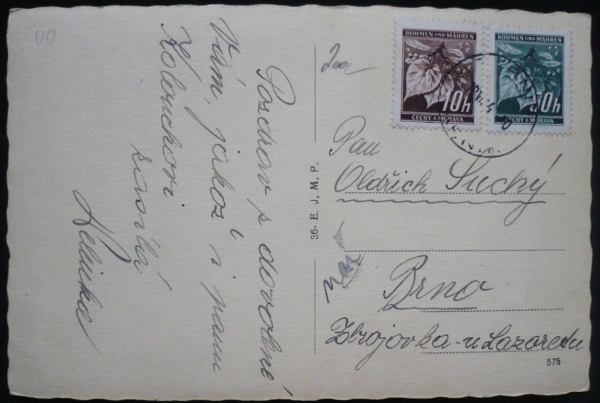 Pozdrav s dovolené
Vám, jakož i panu
Kolouchovi
zasílá
36 - E. J. M. P.
BÖHMEN UND MÄHREN
10h
ČECHY A MORAVA
BÖHMEN UND MÄHREN
50h
ČECHY A MORAVA
Pan
Oldřich Suchý
Brno
Zbrojovka - u Lazaretu
575